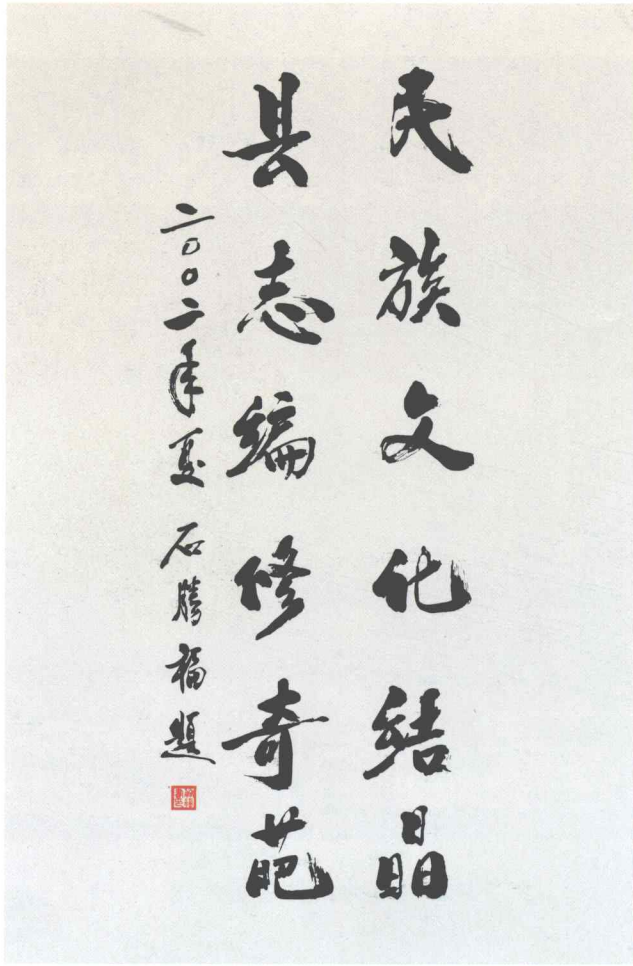 民族文化结晶
县志编修奇葩
二〇〇二年夏 石腾福题